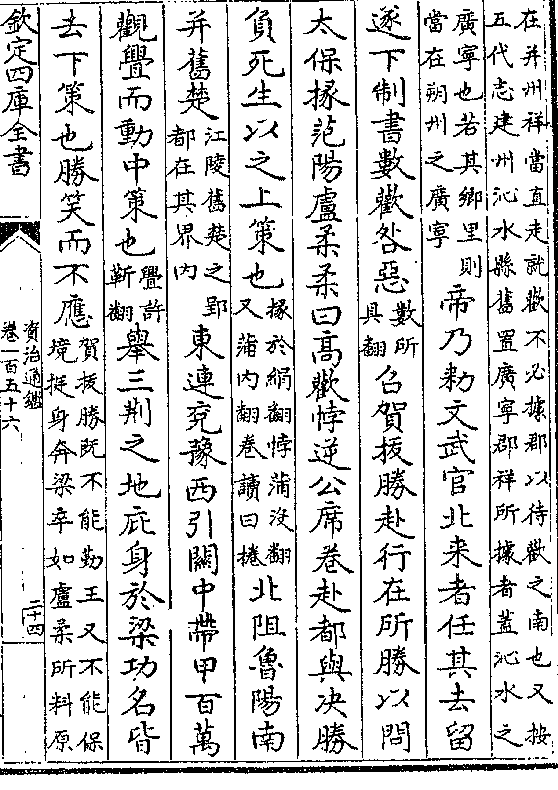 在并州祥當直走就歡不必據郡以待歡之南也又按
五代志建州沁水縣舊置廣寧郡祥所據者蓋沁水之
廣寧也若其鄉里則
當在朔州之廣寧
帝乃勑文武官北来者任其去留
遂下制書數歡咎惡
數所
具翻
召賀拔勝赴行在所勝以問
太保掾范陽盧柔柔曰高歡悖逆公席卷赴都與决勝
負死生以之上策也
掾於絹翻悖蒲没翻
又蒲内翻卷讀曰捲
北阻魯陽南
并舊楚
江陵舊楚之郢
都在其界内
東連兖豫西引關中帶甲百萬
觀舋而動中策也
舋許
靳翻
舉三荆之地庇身於梁功名皆
去下策也勝笑而不應
賀拔勝既不能勤王又不能保
境挺身奔梁卒如盧柔所料原
欽定四庫全書
資治通鑑
卷一百五十六
二十四